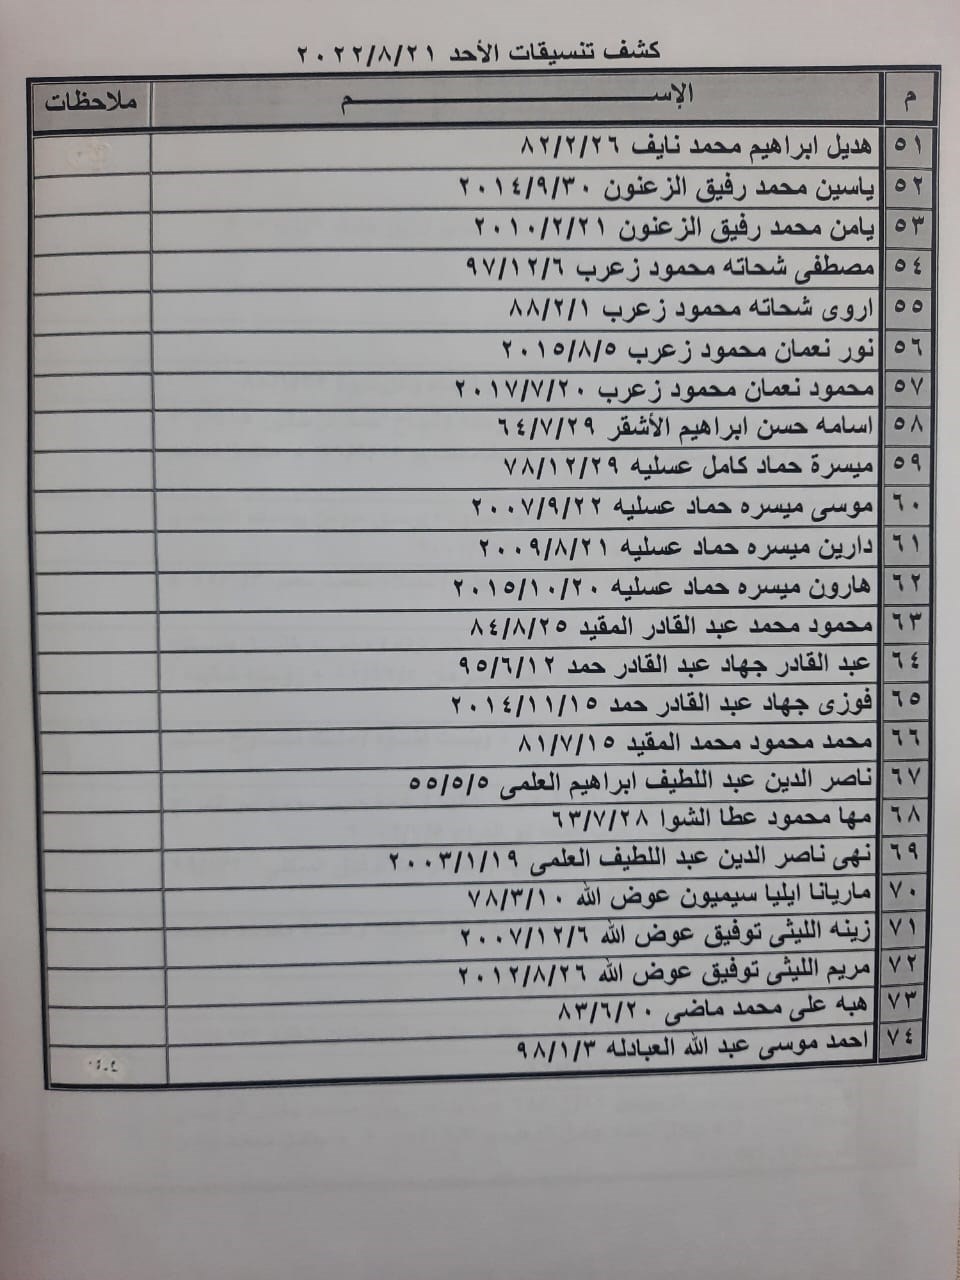 كشف تنسيقات الأحد ٢٠٢٢/٨/٢١
م الإســـــــــــــــــــــم ملاحظات
٥١ هديل ابراهيم محمد نايف ٨٢/٢/٢٦
٥٢ ياسين محمد رفيق الزعنون ٢٠١٤/٩/٣٠
٥٣ يامن محمد رفيق الزعنون ٢٠١٠/٢/٢١
٥٤ مصطفى شحاته محمود زعرب ٩٧/١٢/٦
٥٥ اروى شحاته محمود زعرب ٨٨/٢/١
٥٦ نور نعمان محمود زعرب ٢٠١٥/٨/٥
٥٧ محمود نعمان محمود زعرب ٢٠١٧/٧/٢٠
٥٨ اسامه حسن ابراهيم الأشقر ٦٤/٧/٢٩
٥٩ ميسرة حماد كامل عسليه ٧٨/١٢/٢٩
٦٠ موسى ميسره حماد عسليه ٢٠٠٧/٩/٢٢
٦١ دارين ميسره حماد عسليه ٢٠٠٩/٨/٢١
٦٢ هارون ميسره حماد عسليه ٢٠١٥/١٠/٢٠
٦٣ محمود محمد عبد القادر المقيد ٨٤/٨/٢٥
٦٤ عبد القادر جهاد عبد القادر حمد ٩٥/٦/١٢
٦٥ فوزى جهاد عبد القادر حمد ٢٠١٤/١١/١٥
٦٦ محمد محمود محمد المقيد ٨١/٧/١٥
٦٧ ناصر الدين عبد اللطيف ابراهيم العلمى ٥٥/٥/٥
٦٨ مها محمود عطا الشوا ٦٣/٧/٢٨
٦٩ نهى ناصر الدين عبد اللطيف العلمى ٢٠٠٣/١/١٩
٧٠ ماريانا ايليا سيميون عوض الله ٧٨/٣/١٠
٧١ زينه الليثى توفيق عوض الله ٢٠٠٧/١٢/٦
٧٢ مريم الليثى توفيق عوض الله ٢٠١٢/٨/٢٦
٧٣ هبه على محمد ماضى ٨٣/٦/٢٠
٧٤ احمد موسى عبد الله العبادله ٩٨/١/٣